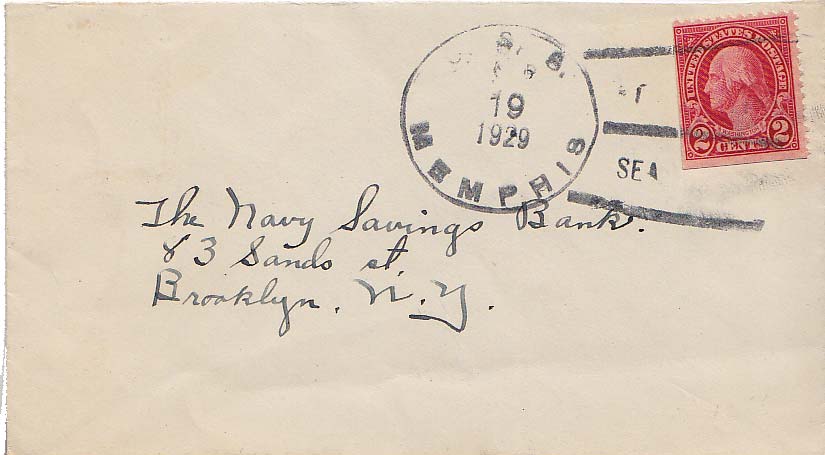 U. S. S.
19
1929
MEMPHIS
AT
SEA
UNITED STATES POSTAGE
WASHINGTON
2 CENTS 2
The Navy Savings Bank.
83 Sands st.
Brooklyn, N.Y.